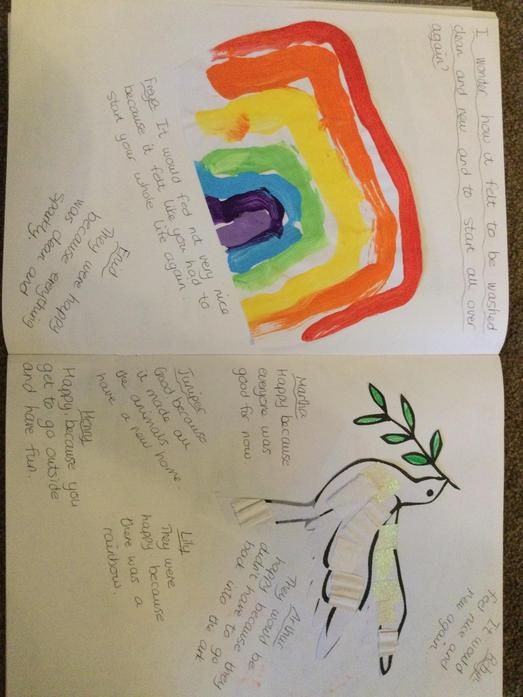 I wonder how it felt to be washed
clean and new and to start all over
again?
Freya It would feel not very nice
because it felt like you had to
start your whole life again.
They were happy
because everything
was clean and
sparkly.
Martha:
Happy because
everyone was
good for now
Juniper
Good because
it made all
the animals home.
have a new
Henry
Happy, because you
get to go outside
and have fun.
Lily
They were
happy because
there was a
rainbow
Arthur
They would be
happy because they
didn't have to go
back into the ark
It would
feel nice and
new again